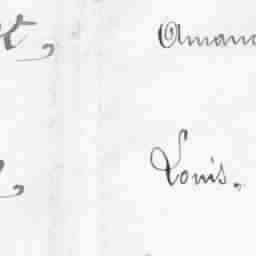 t, Amand
Louis.